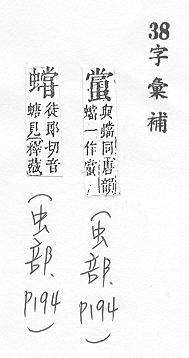 38 字彙補
與蟷同唐韻
蟷一作
(虫部 P194)
徒郎切音
螗見釋藏
(虫部 P194)